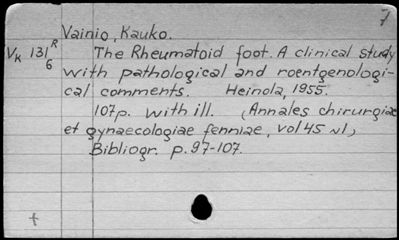 7
Vainio, Kauko.
Vk 131 R
6
The Rheumatoid foot. A clinical study
with pathological and roentgenologi-
cal comments. Heinola, 1955.
107p. with ill. (Annales chirurgiae
et gynaecologiae fenniae, vol 45 √1)
Bibliogr. p. 97-107.
t